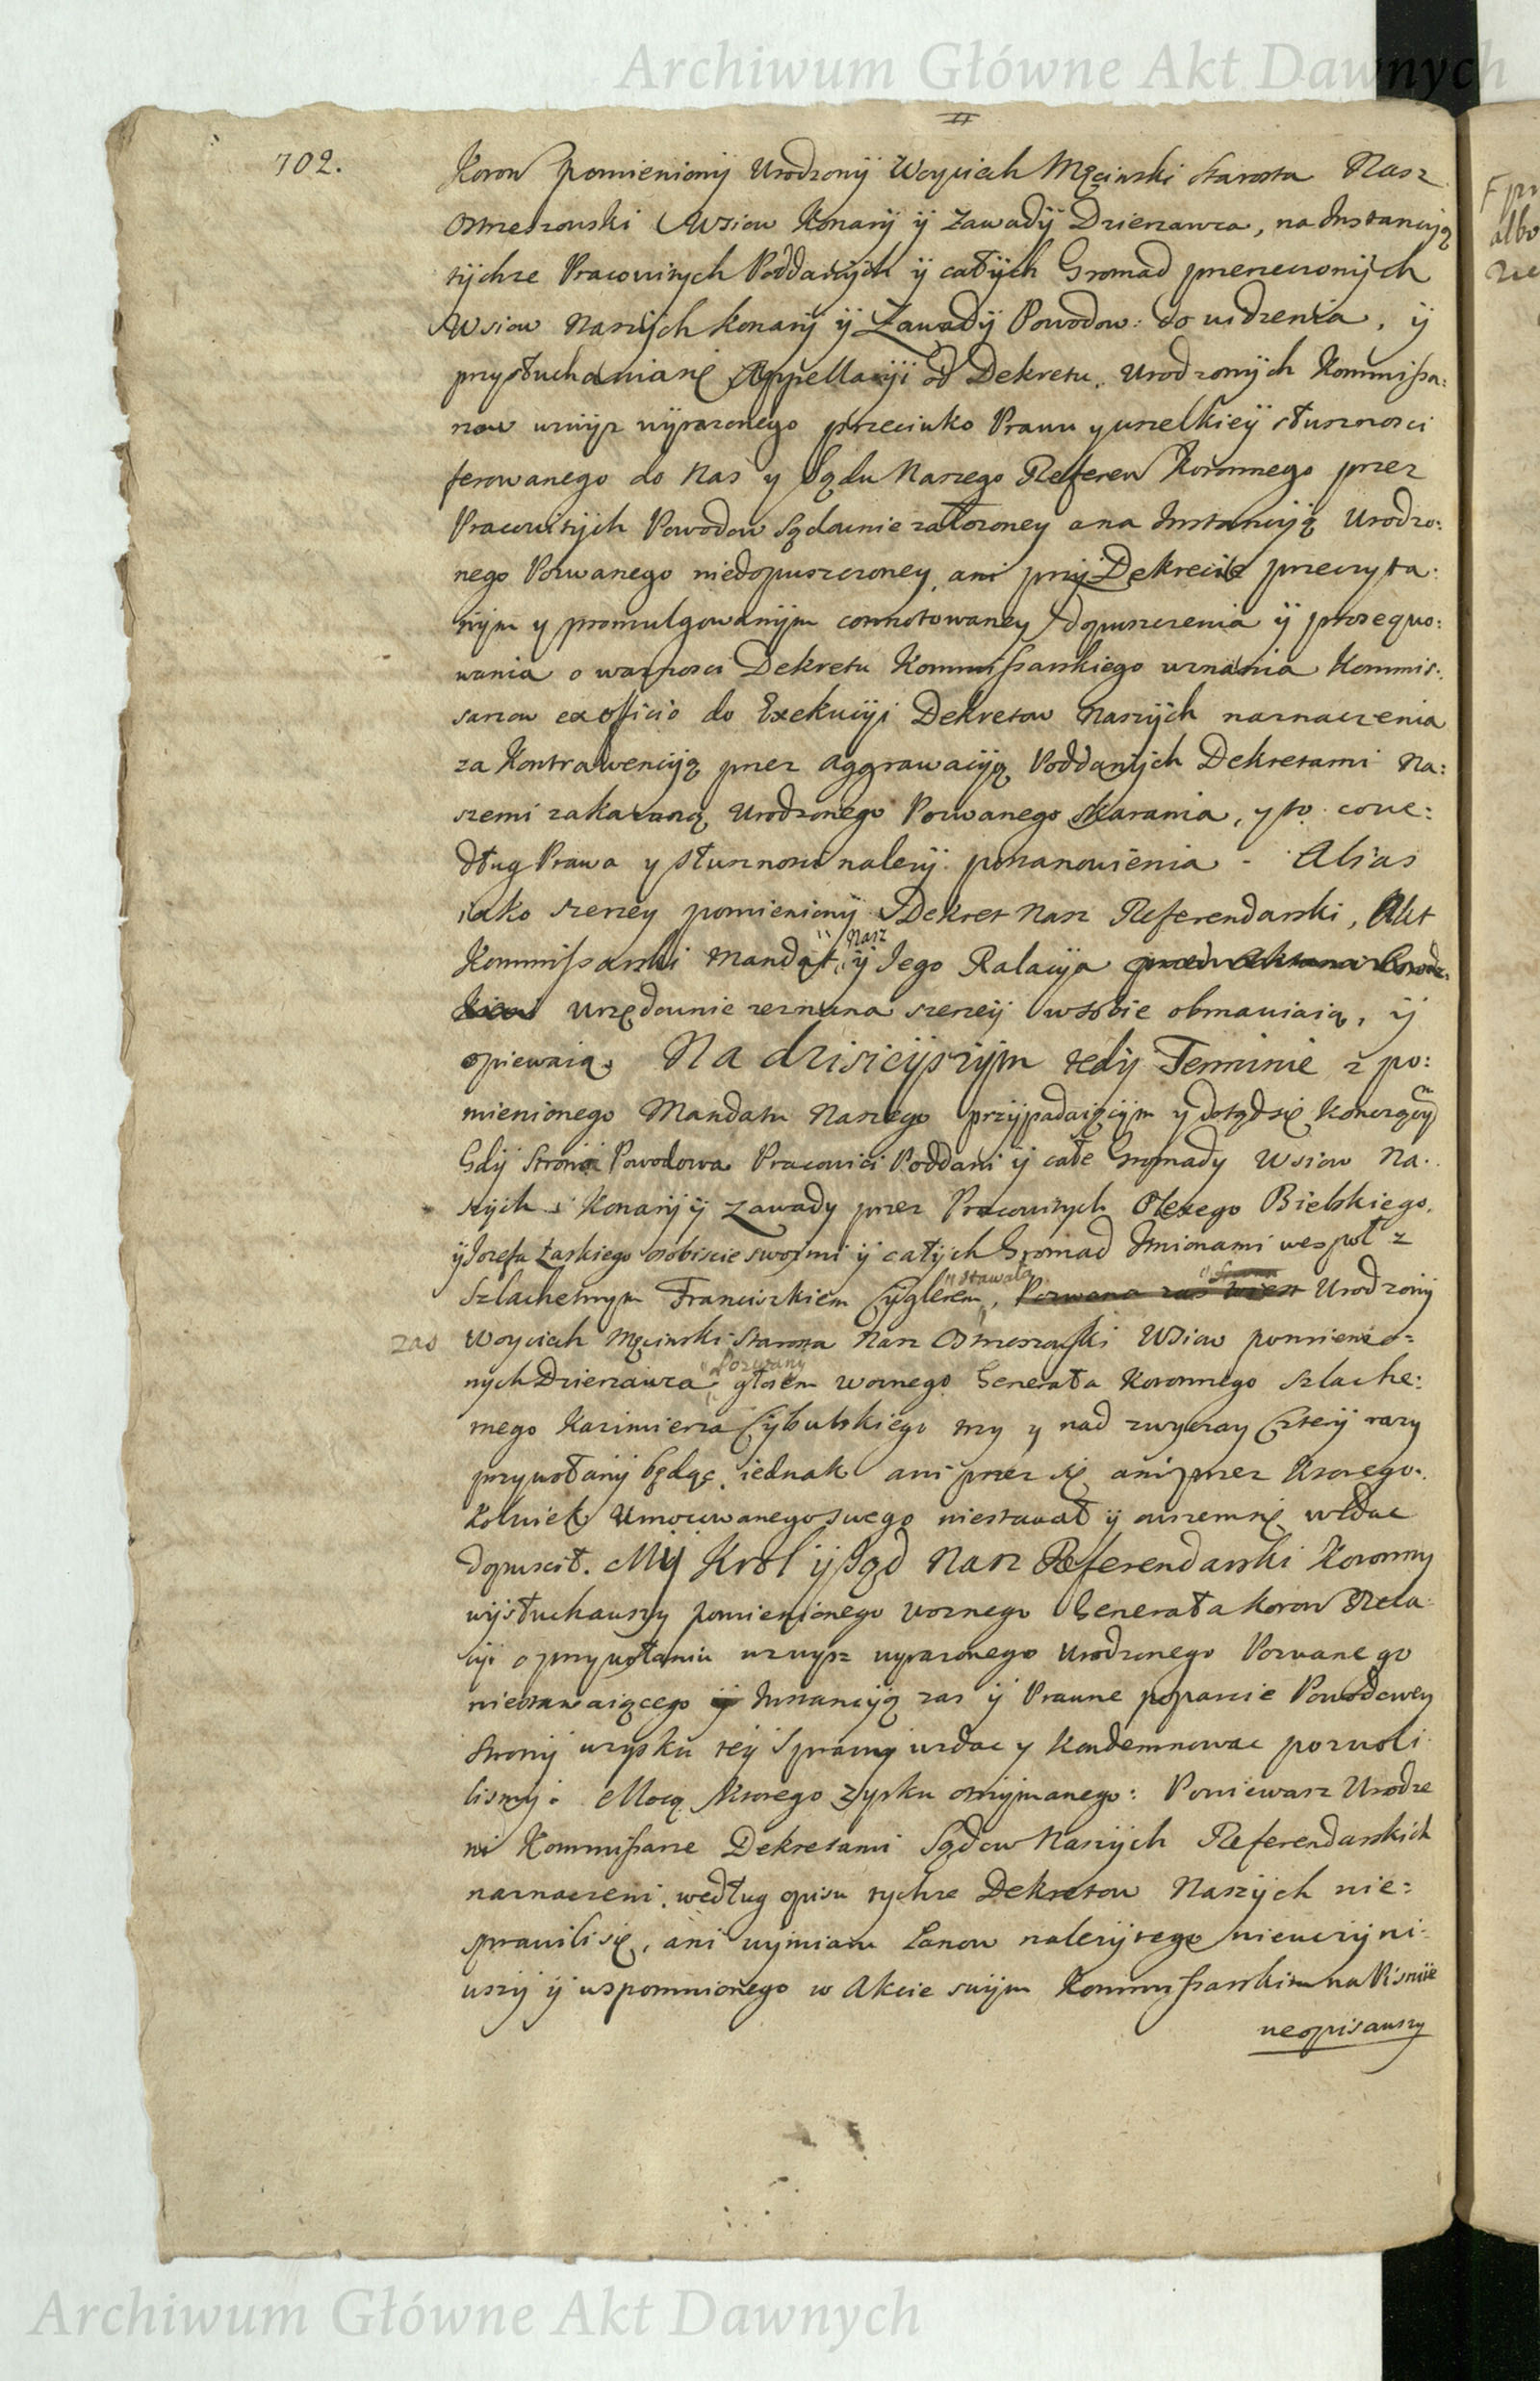 Archiwum Główne Akt Dawnych
702.
Koron pomieniony Urodzony Woyciech Męcinski Starosta Nasz
Ostrzeszowski Wsiow Konary ÿ Zawady Dzierzawca, na Instancyią
tychze Pracowitych Poddanych ÿ całych Gromad przerzeczonych
Wsiow Naszych Konary ÿ Zawady Powodow: do widzenia, ÿ
przysłuchaniasię Appellacyi od Dekretu Urodzonych Kommissa:
rzow wzwyż wyrazonego przeciwko Prawu y wszelkiey słusznosci
ferowanego do Nas y Sądu Naszego Referen Koronnego przez
Pracowitych Powodow Sądownie założoney a na Instancyią Urodzo:
nego Pozwanego niedopuszczoney, ani przy Dekrecie przeczyta:
nym y promulgowanym connotowaney dopuszczenia ÿ prosequo:
wania o waznosci Dekretu Kommissarskiego uznania Kommis:
sarzow ex officio do Exekucyi Dekretow Naszych naznaczenia
za Kontrawencyią przez aggrawacyią Poddanych Dekretami Na:
szemi zakazaną Urodzonego Pozwanego skarania, y to cowe:
dług Prawa y słusznosci nalezy postanowienia - Alias
iako szerzey pomieniony Dekret Nasz Referendarski, Akt
Kommissarski Mandat Nasz ÿ Jego Ralacyia
urzędownie zeznana szerzey w sobie obmawiaią, ÿ
opiewaią. Na dzisieyszym tedy Terminie z po:
mienionego Mandatu Naszego przypadaiącym y dotądsię konczącym
Gdy Strona Powodowa Pracowici Poddani ÿ całe Gromady Wsiow Na:
szych Konary ÿ Zawady przez Pracowitych Olexego Bielskiego,
ÿ Jozefa Łaskiego osobiscie swoimi ÿ całych Gromad Imionami wespoł z
Szlachetnym Franciszkiem Cyglerem, stawała Urodzony
zas Woyciech Męcinski Starosta Nasz Ostrzeszowski Wsiow pomienio=
nych Dzierzawca Pozwany głosem woznego Generała Koronnego Szlache:
tnego Kazimierza Cybulskiego trzy y nad zwyczay Cztery razy
przywołany będąc, iednak ani przez się ani przez Ktorego:
kolwiek Umocowanego swego niestawał ÿ owszemsię wzdac
dopuscił. My Krol ÿ Sąd Nasz Referendarski Koronny
wysłuchawszy pomienionego woznego Generała Koron Rela:
cyi o przywołaniu wzwysz wyrazonego Urodzonego Pozwanego
niestawaiącego Instancyią zas ÿ Prawne poparcie Powodowey
Strony wzysku tey Sprawy wzdac y Kondemnowac pozwoli:
lismy. Mocą Ktorego zysku otrzymanego: Poniewasz Urodze
ni Kommissarze Dekretami Sądow Naszych Referendarskich
naznaczeni, według opisu tychze Dekretow Naszych nie=
sprawilisię, ani wymiaru Łanow nalezytego nieuczyni:
wszy ÿ wspomnionego w Akcie swym Kommissarskim na Pismie
neopisawszy
albo
Archiwum Główne Akt Dawnych